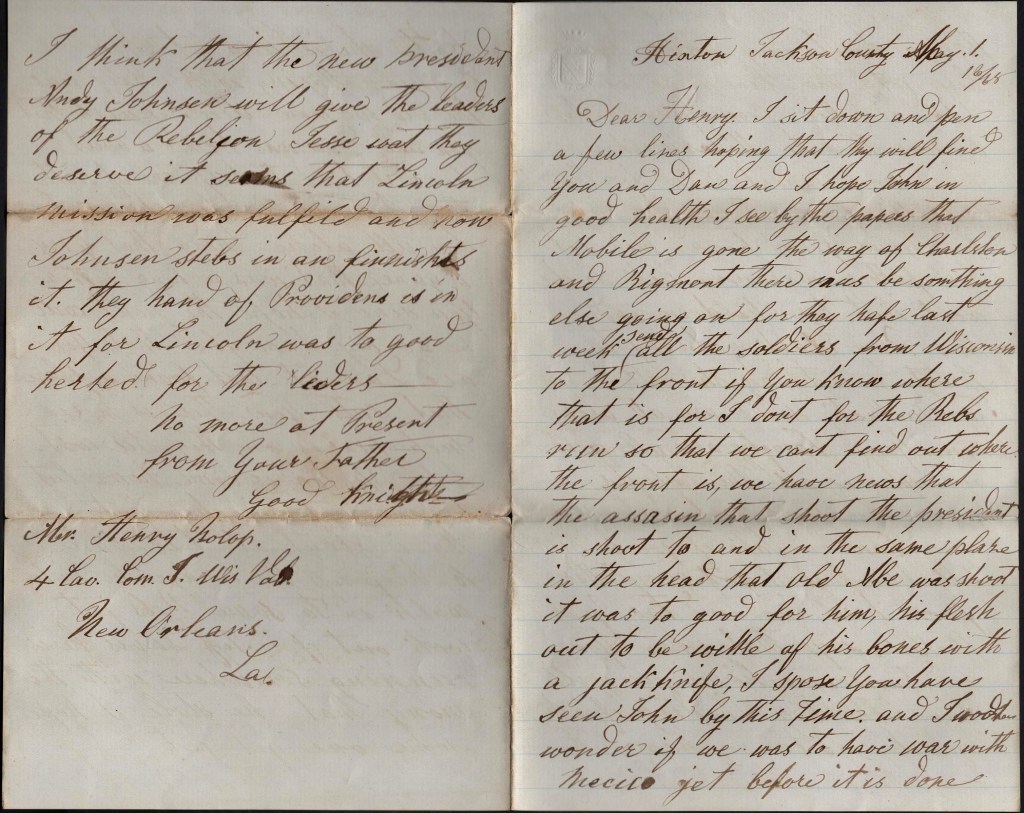 Hixton Jackson County May. 1.
1865
Dear Henry. I sit down and pen
a few lines hoping that thy will find
You and Dan and I hope John in
good health I see by the papers that
Mobile is gone the way of Charlston
and Rigmont there mus be somthing
else going on for they hafe last
week send all the soldiers from Wisconsin
to the front if You know where
that is for I dont for the Rebs
run so that we cant find out where
the front is, we have news that
the assasin that shoot the president
is shoot to and in the same plaze
in the head that old Abe was shoot
it was to good for him, his flesh
out to be wittle of his bones with
a jack knife, I spose You have
seen John by this Time. and I
wonder if we was to have war with
Mecico yet before it is done
I think that the new president
Andy Johnsen will give the leaders
of the Rebelion Jesse wat they
deserve it seems that Lincoln
mission was fulfild and now
Johnsen stebs in an finnishts
it. they hand of Providens is in
it for Lincoln was to good
herted for the liders
No more at Present
from Your Father
Good Knight
Mr. Henry
4 Cav. Com. I. Wis Vol.
New Orleans.
La.